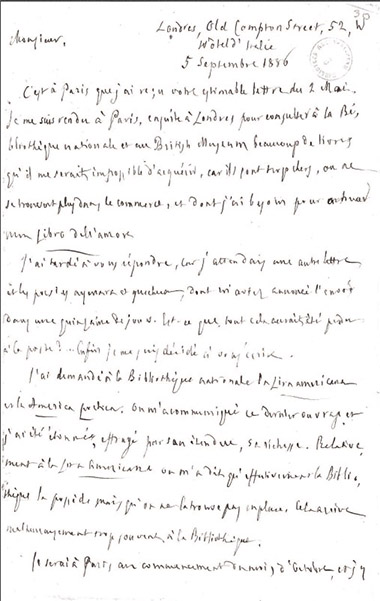 Londres, Old Compton Street, 52, W
Monsieur,
Hôtel d'Italie
5 Septembre 1886
C'est à Paris que j'ai reçu votre estimable lettre du 2 Mai.
Je me suis rendu à Paris, ensuite à Londres pour consulter à la Bi-
bliothèque nationale et au British Museum beaucoup de livres
qu'il me serait impossible d'acquérir, car ils sont trop chers, ou ne
se trouvent plus dans le commerce, et dont j'ai besoin pour
mon Libro dell'amore
J'ai tardé à vous répondre, car j'attendais une autre lettre
et les poesies aymara et quechua, dont vous avez annoncé l'envoi
dans une quinzaine de jours. Est-ce que tout cela aurait été perdu
à la poste? Enfin je me suis décidé à vous écrire.
J'ai demandé à la Bibliothèque nationale la Lira americana
et la America poetica. On m'a communiqué ce dernier ouvrage, et
j'ai été étonné, effrayé par son étendue, sa richesse. Relative-
ment à la Lira Americana on m'a dit qu'effectivement la Biblio-
thèque la possède mais qu'on ne la trouve pas en place. Cela arrive
malheureusement trop souvent à la Bibliothèque.
Je serai à Paris au commencement du mois d'Octobre, et j'y